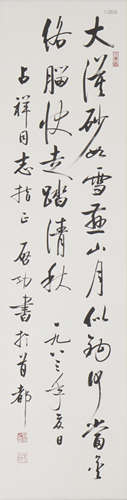 大漠砂如雪燕山月似钩何当金
络脑快走踏清秋 一九八三年夏日
占祥同志指正 启功书于首都